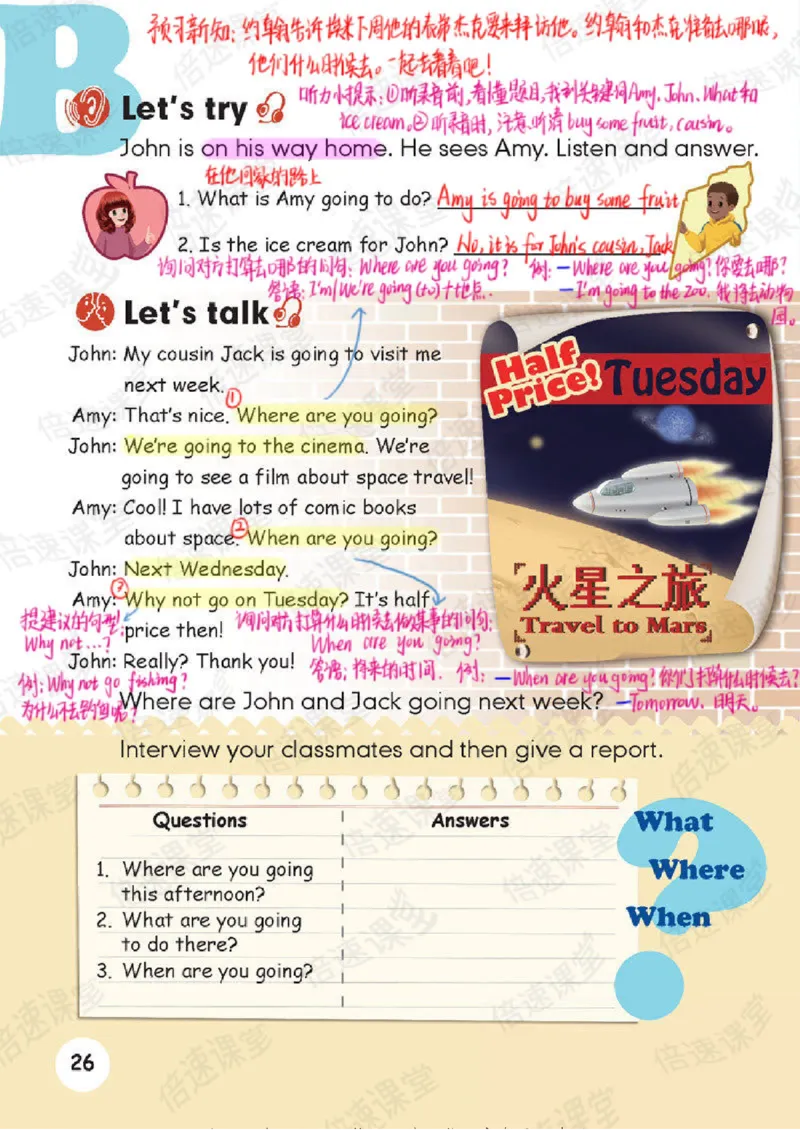 B
预习新知：约翰告诉埃米下周他的表弟杰克要来拜访他。约翰和杰克准备去哪呢，
他们什么时候去。一起去看看吧！
Let's try
听力小提示：①听录音前，看懂题目，找到关键词Amy、John、What和
ice cream。②听录音时，注意听清buy some fruit, cousin。
John is on his way home. He sees Amy. Listen and answer.
在他回家的路上
1. What is Amy going to do? Amy is going to buy some fruit
2. Is the ice cream for John? No, it is for John's cousin, Jack
询问对方打算去哪的问句：Where are you going? 例：—Where are you going?你要去哪?
答语：I'm/We're going (to)+地点. —I'm going to the zoo. 我将去动物园。
Let's talk
John: My cousin Jack is going to visit me
next week.
①
Amy: That's nice. Where are you going?
John: We're going to the cinema. We're
going to see a film about space travel!
Amy: Cool! I have lots of comic books
about space. ② When are you going?
John: Next Wednesday.
③
Amy: Why not go on Tuesday? It's half
price then!
提建议的句型：
Why not...?
询问对方打算什么时候去做某事的问句：
When are you going?
John: Really? Thank you!
答语：将来的时间. 例：—When are you going?你们打算什么时候去?
—Tomorrow. 明天。
例：Why not go fishing?
为什么不去钓鱼呢?
Where are John and Jack going next week?
Half
Price!
Tuesday
火星之旅
Travel to Mars
Interview your classmates and then give a report.
Questions Answers
1. Where are you going
this afternoon?
2. What are you going
to do there?
3. When are you going?
What
Where
When
?
26
倍速课堂